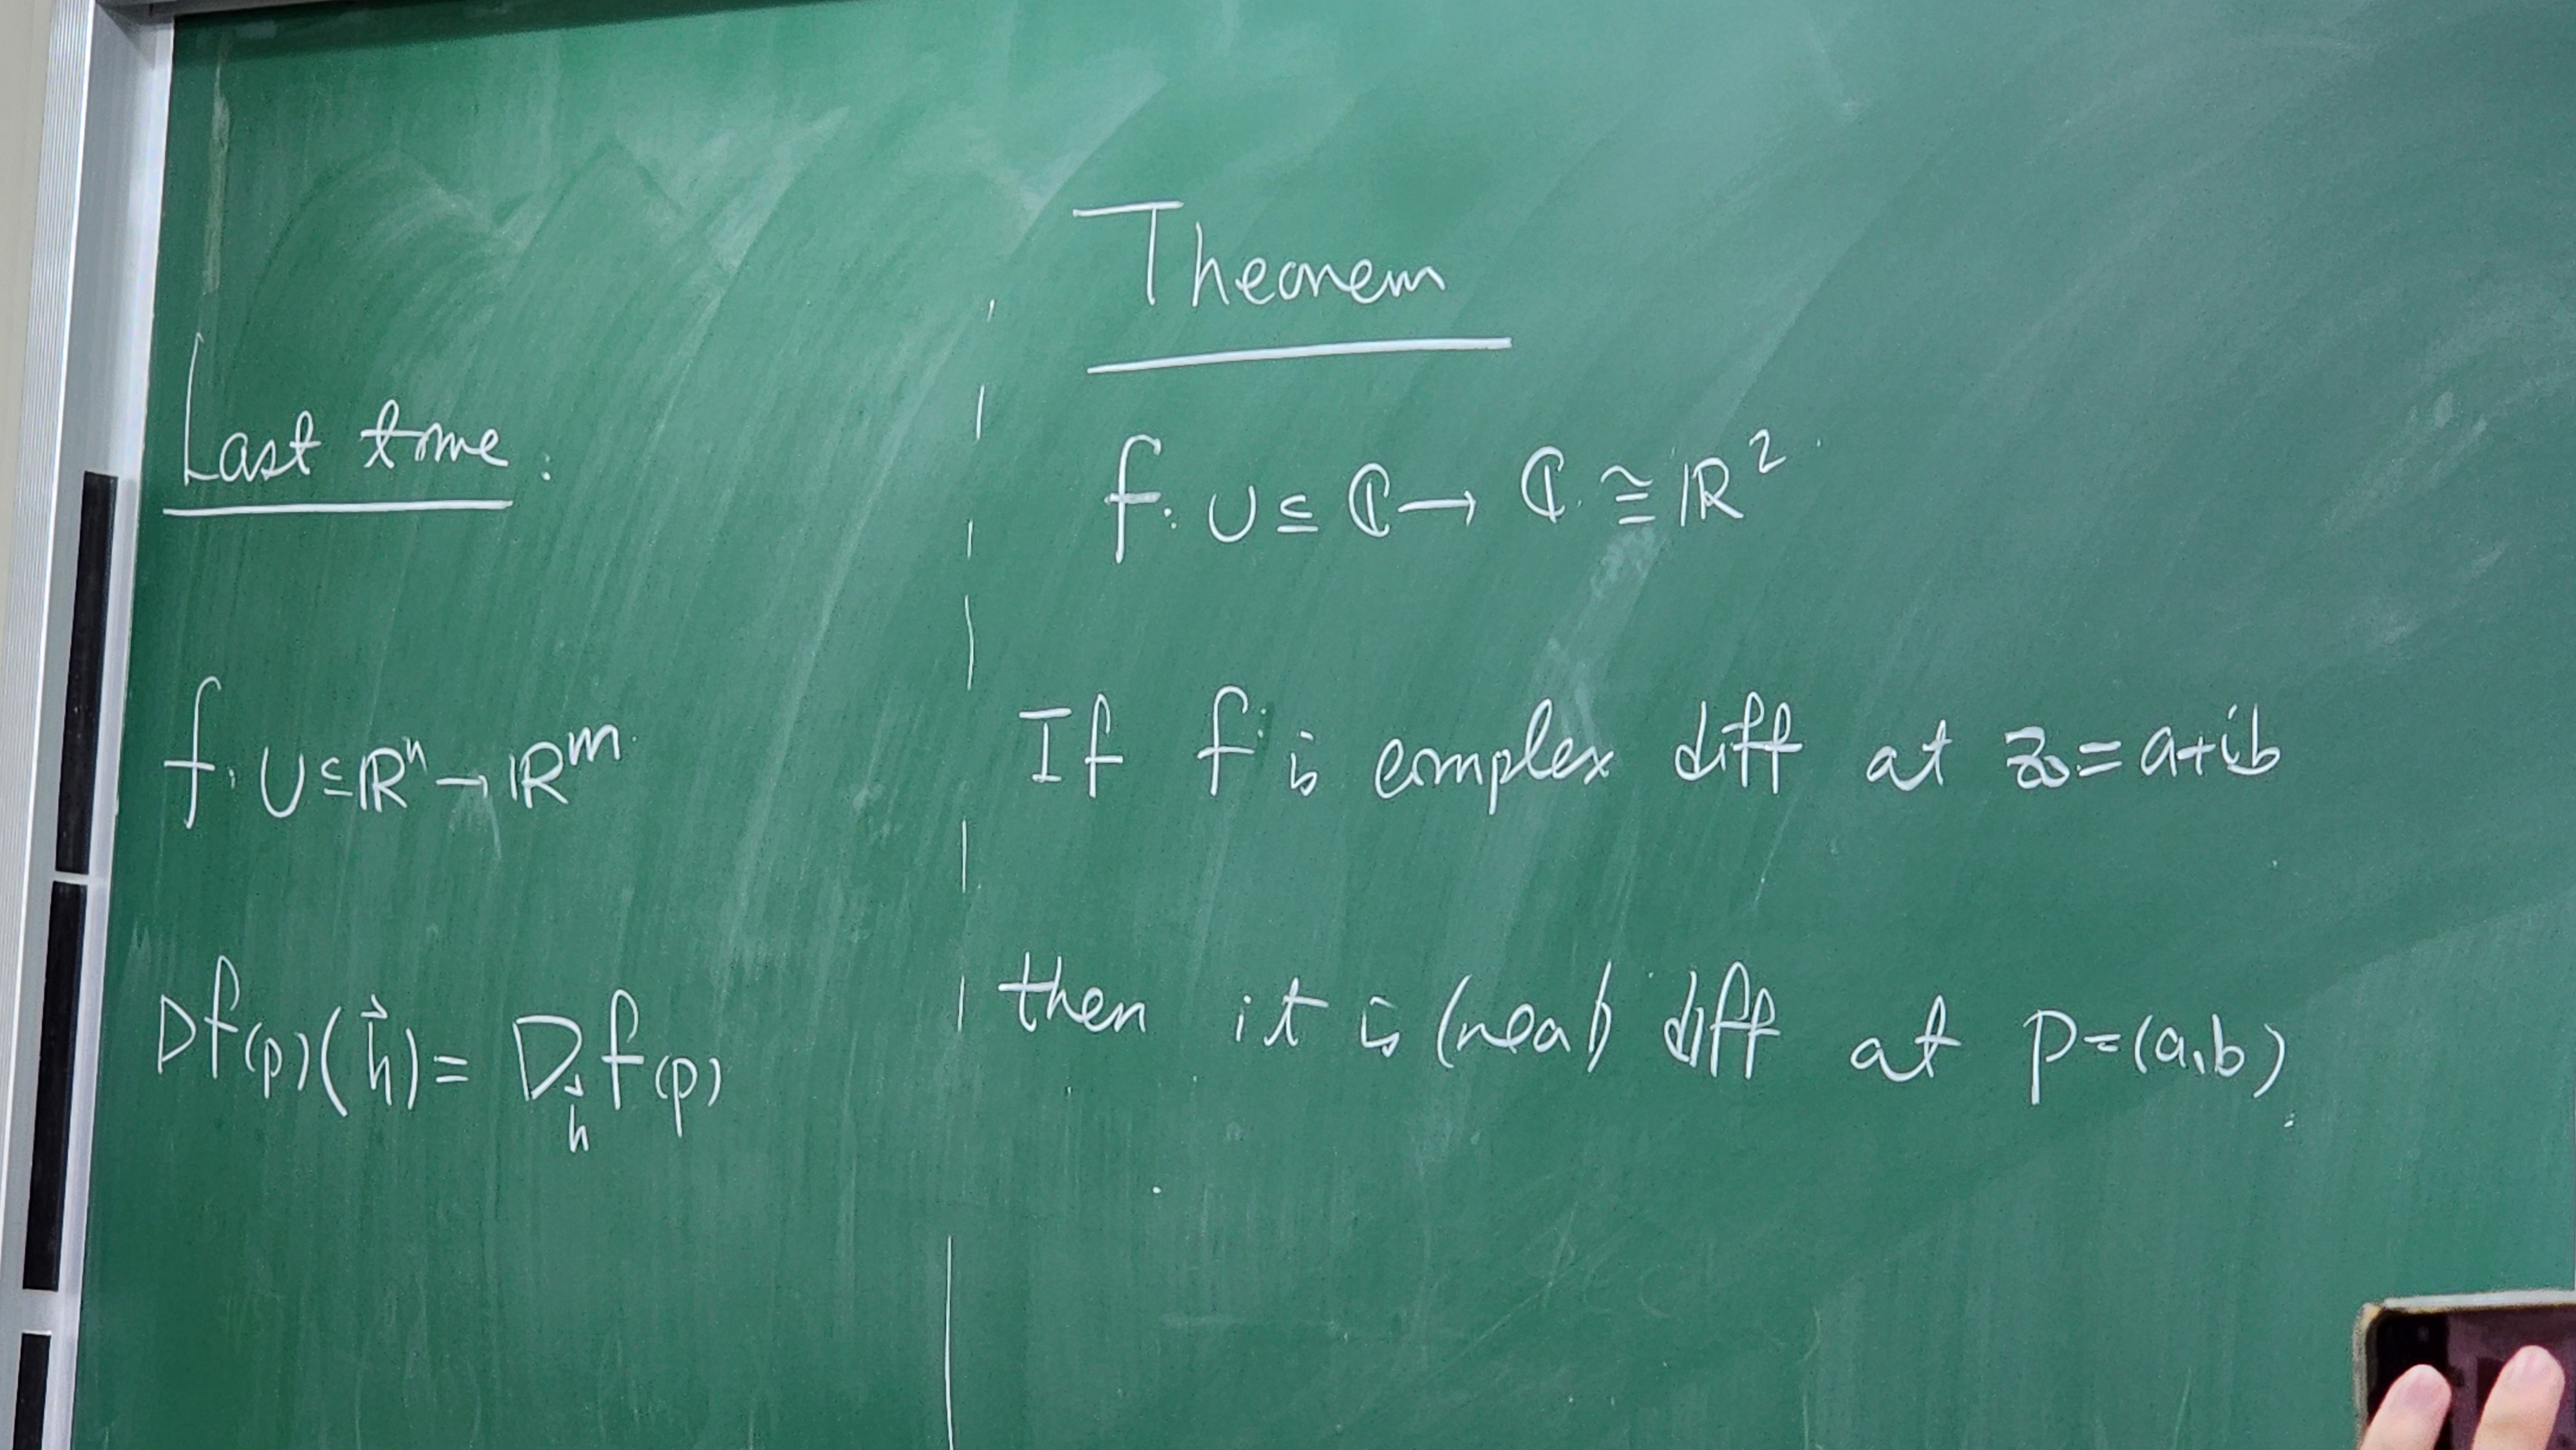 Last time:
f: U ⊆ ℝⁿ → ℝᵐ
Df(p)(h⃗) = D_h⃗ f(p)
Theorem
f: U ⊆ ℂ → ℂ ≅ ℝ²
If f is complex diff at z₀ = a+ib
then it is (real) diff at p=(a,b).